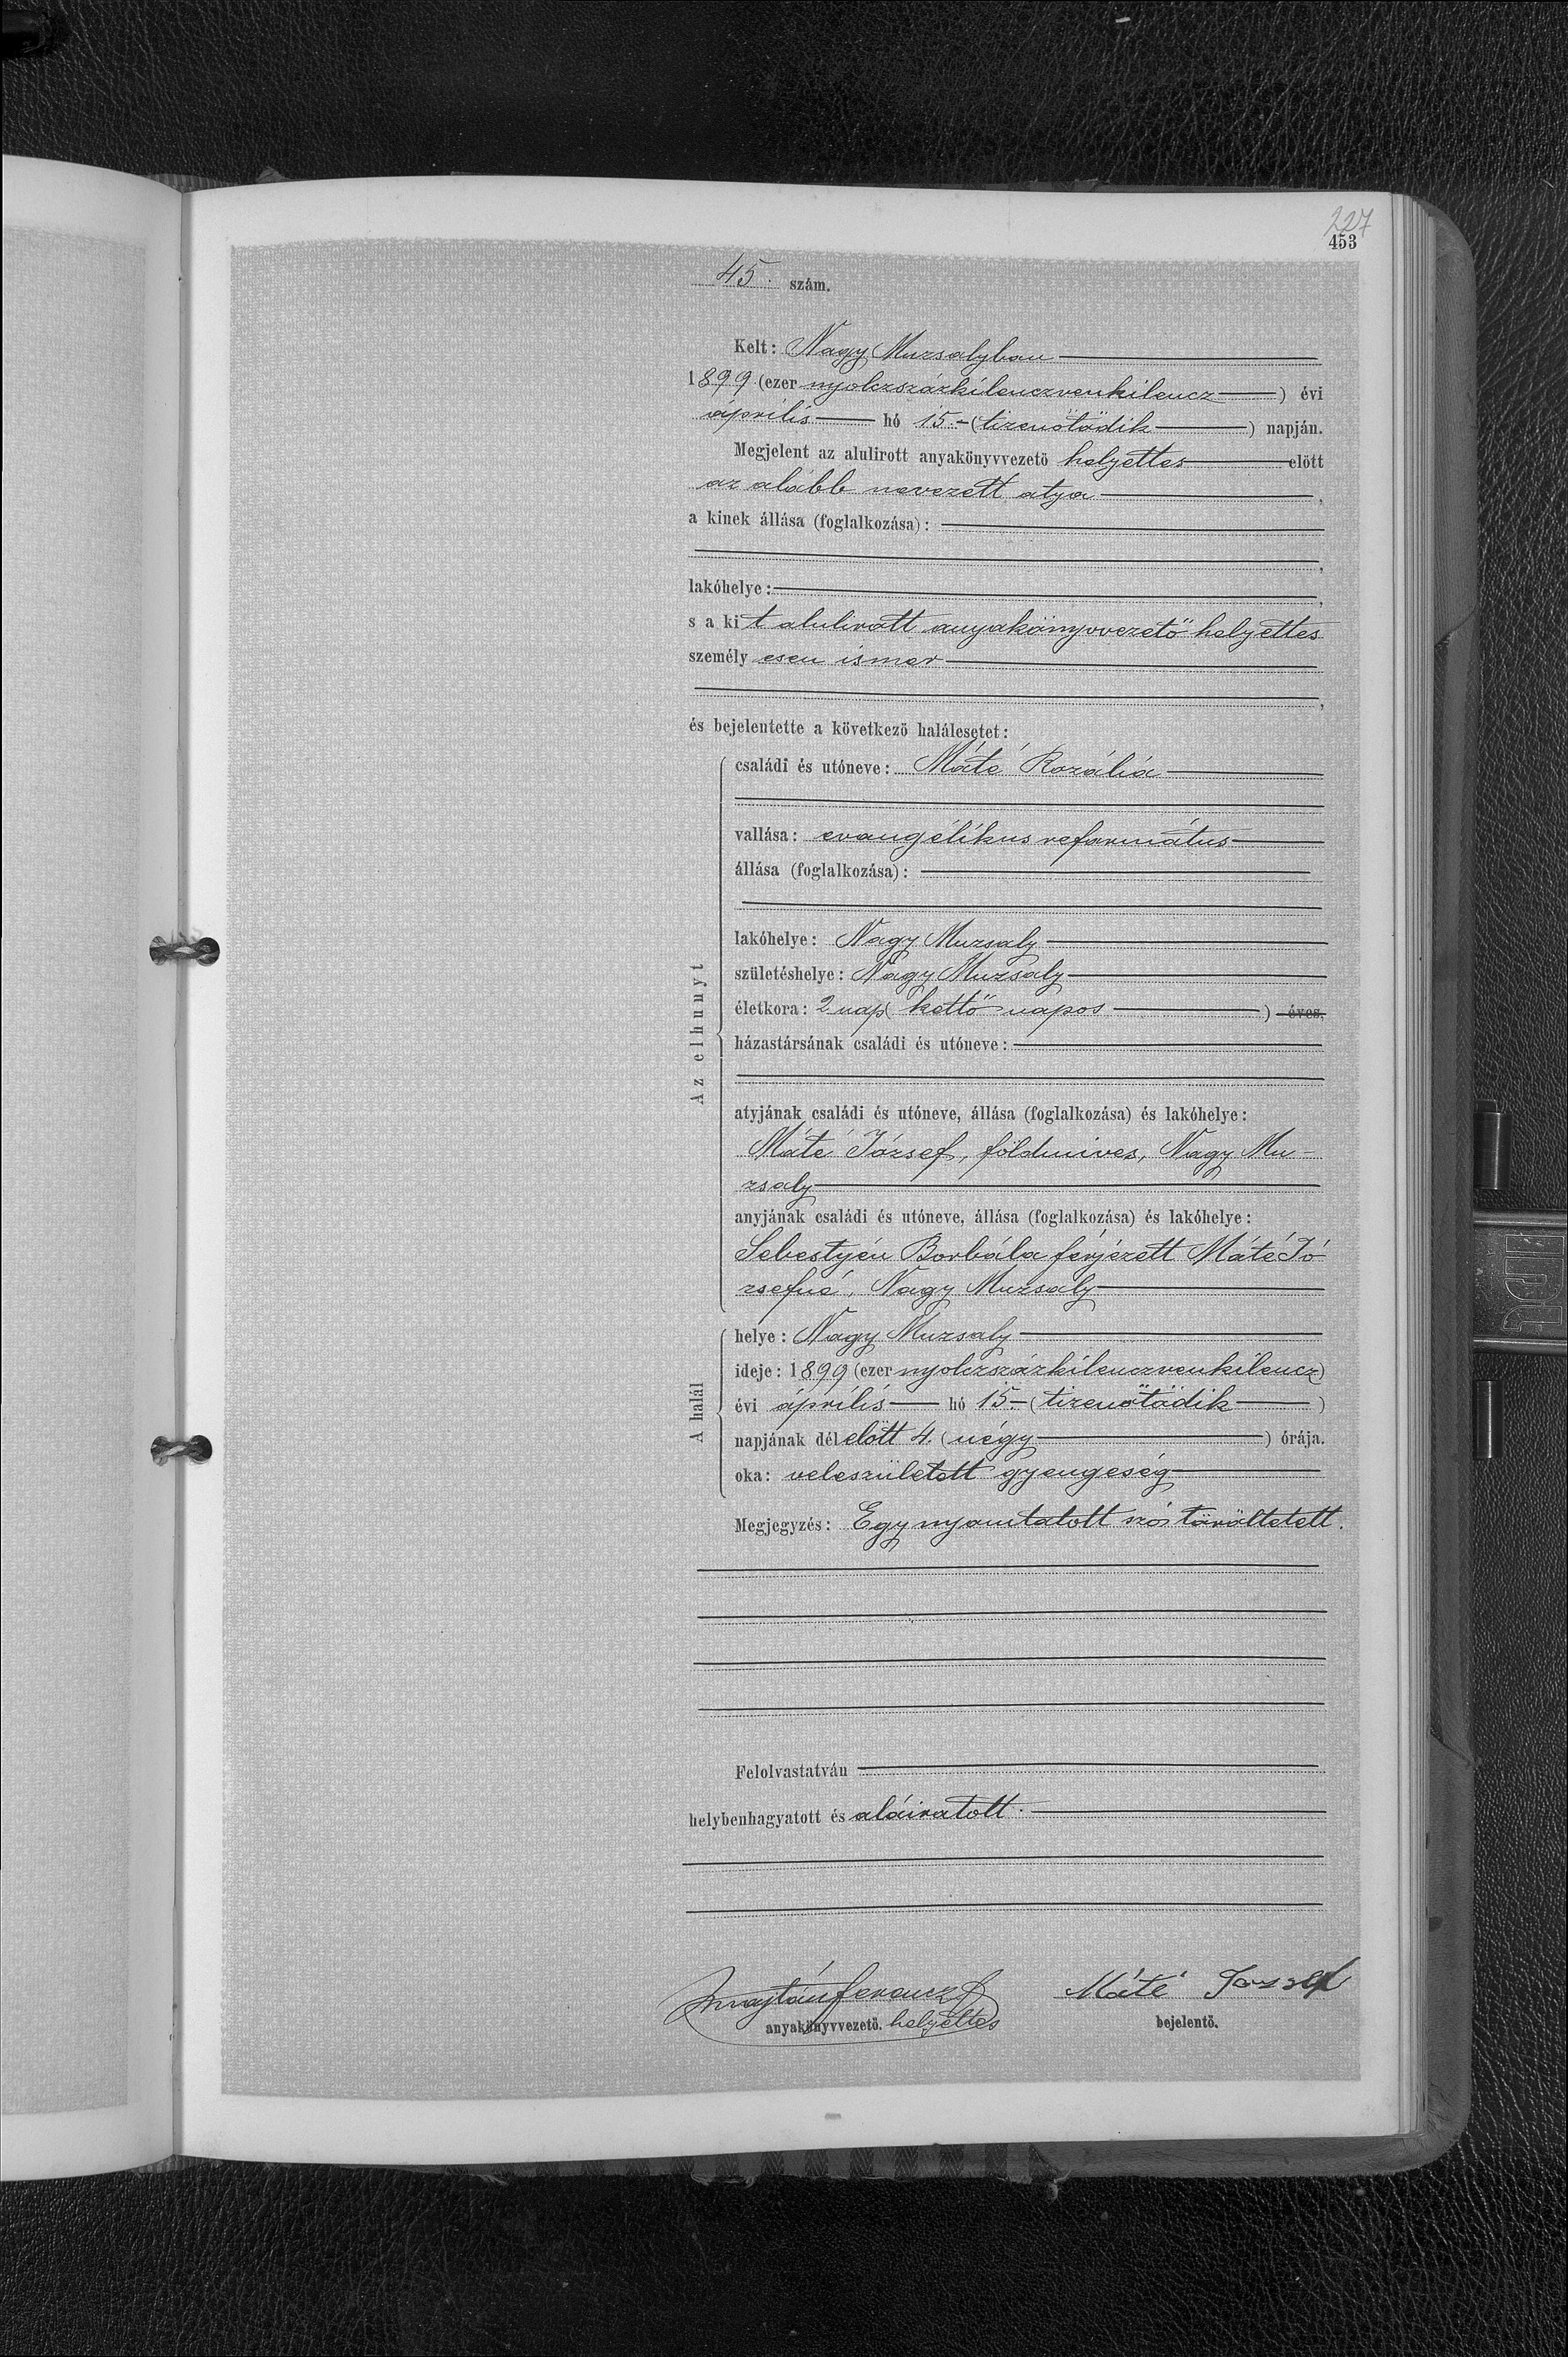 227
453
45. szám.
Kelt: Nagy Muzsalyban
1899 (ezer nyolczszázkilenczvenkilencz) évi
április hó 15. (tizenötödik) napján.
Megjelent az alulirott anyakönyvvezető helyettes előtt
az alább nevezett atya,
a kinek állása (foglalkozása):
,
lakóhelye: ,
s a kit alulirott anyakönyvvezető helyettes
személyesen ismer
,
és bejelentette a következő halálesetet:
Az elhunyt
családi és utóneve: Máté Rozália
vallása: evangélikus református
állása (foglalkozása):
lakóhelye: Nagy Muzsaly
születéshelye: Nagy Muzsaly
életkora: 2 nap (kettő napos) éves,
házastársának családi és utóneve:
atyjának családi és utóneve, állása (foglalkozása) és lakóhelye:
Máté József, földmives, Nagy Mu-
zsaly
anyjának családi és utóneve, állása (foglalkozása) és lakóhelye:
Sebestyén Borbála férjezett Máté Jó
zsefné, Nagy Muzsaly
A halál
helye: Nagy Muzsaly
ideje: 1899 (ezer nyolczszázkilenczvenkilencz)
évi április hó 15. (tizenötödik)
napjának délelőtt 4. (négy) órája.
oka: veleszületett gyengeség
Megjegyzés: Egy nyomtatott szó töröltetett.
Felolvastatván
helybenhagyatott és aláiratott.
ferencz Máté József
anyakönyvvezető. helyettes bejelentő.